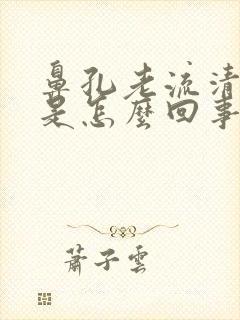 鼻孔老流清
是怎麼回事
蕭子雲